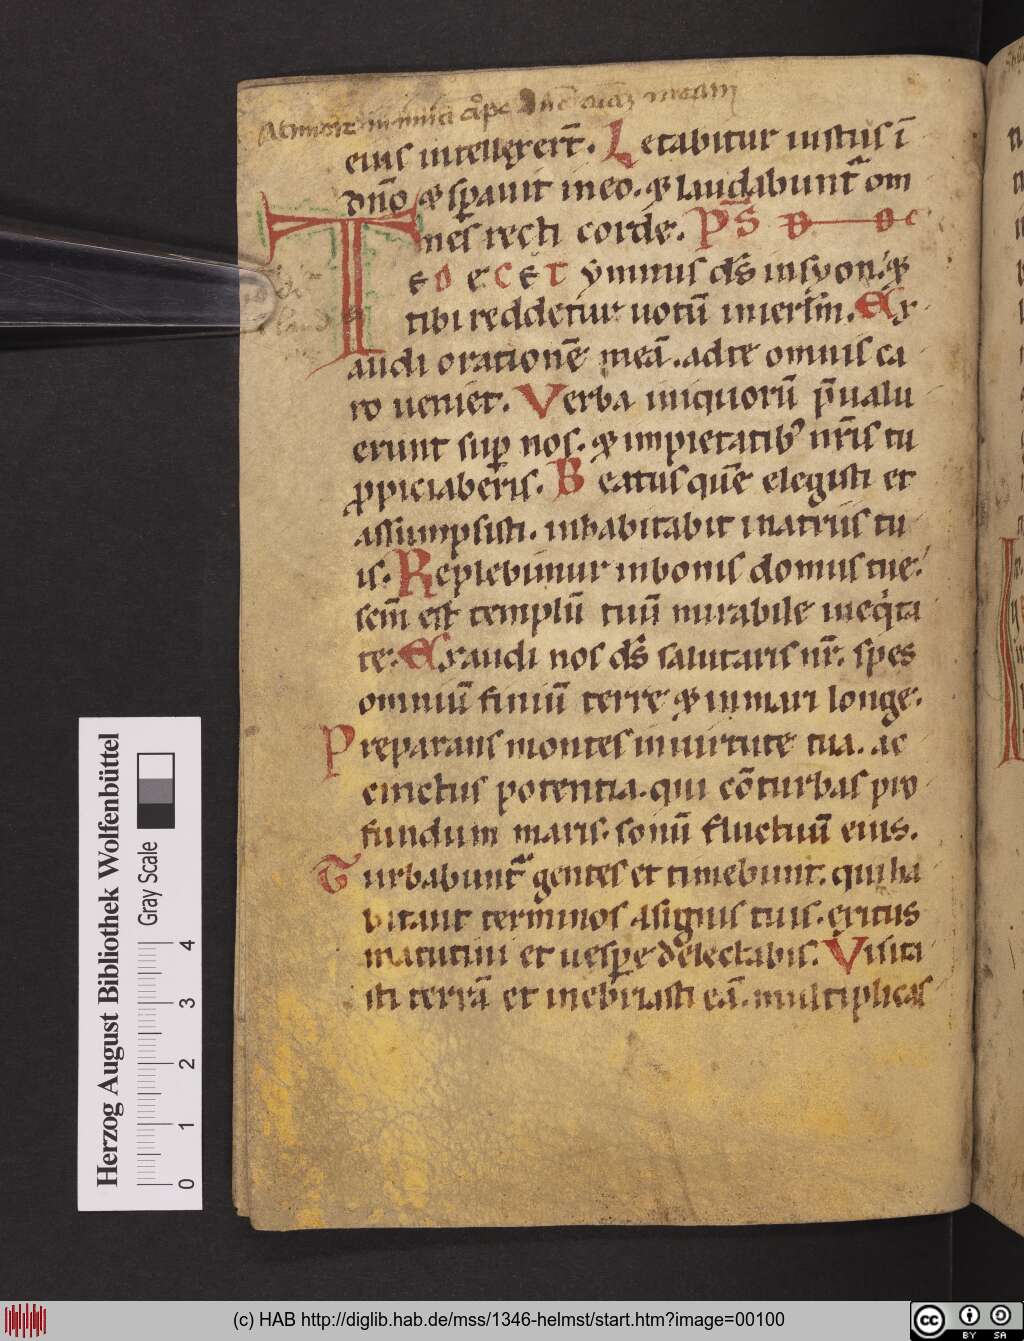 A timore inimici eripe dn̄e aīaȝ meam
eius intellexer̄t. Letabitur iustus ī
dn̄o & spauit in eo. & laudabunt̄ om
nes recti corde. PS̄ DD
TE DECET ymnus ds̄ in syon. &
tibi reddetur uotū in ierl̄m. Ex
audi orationē meā. ad te omnis ca
ro ueniet. Verba iniquorū p̄ualu
erunt sup nos. & impietatib' nr̄is tu
ppiciaberis. Beatus quē elegisti et
assumpsisti. inhabitabit in atriis tu
is. Replebimur in bonis domus tue.
scm̄ est templū tuū mirabile in eqita
te. Exaudi nos ds̄ salutaris nr̄. spes
omniū finiū terre & in mari longe.
Preparans montes in uirtute tua. ac
cinctus potentia. qui cōturbas pro
fundum maris. sonū fluctuū eius.
Turbabunt̄ gentes et timebunt. qui ha
bitant terminos a signis tuis. exitus
matutini et uespe delectabis. Visita
sti terrā et inebriasti eā. multiplicas
Herzog August Bibliothek Wolfenbüttel
Gray Scale
0 1 2 3 4
(c) HAB http://diglib.hab.de/mss/1346-helmst/start.htm?image=00100
cc BY SA